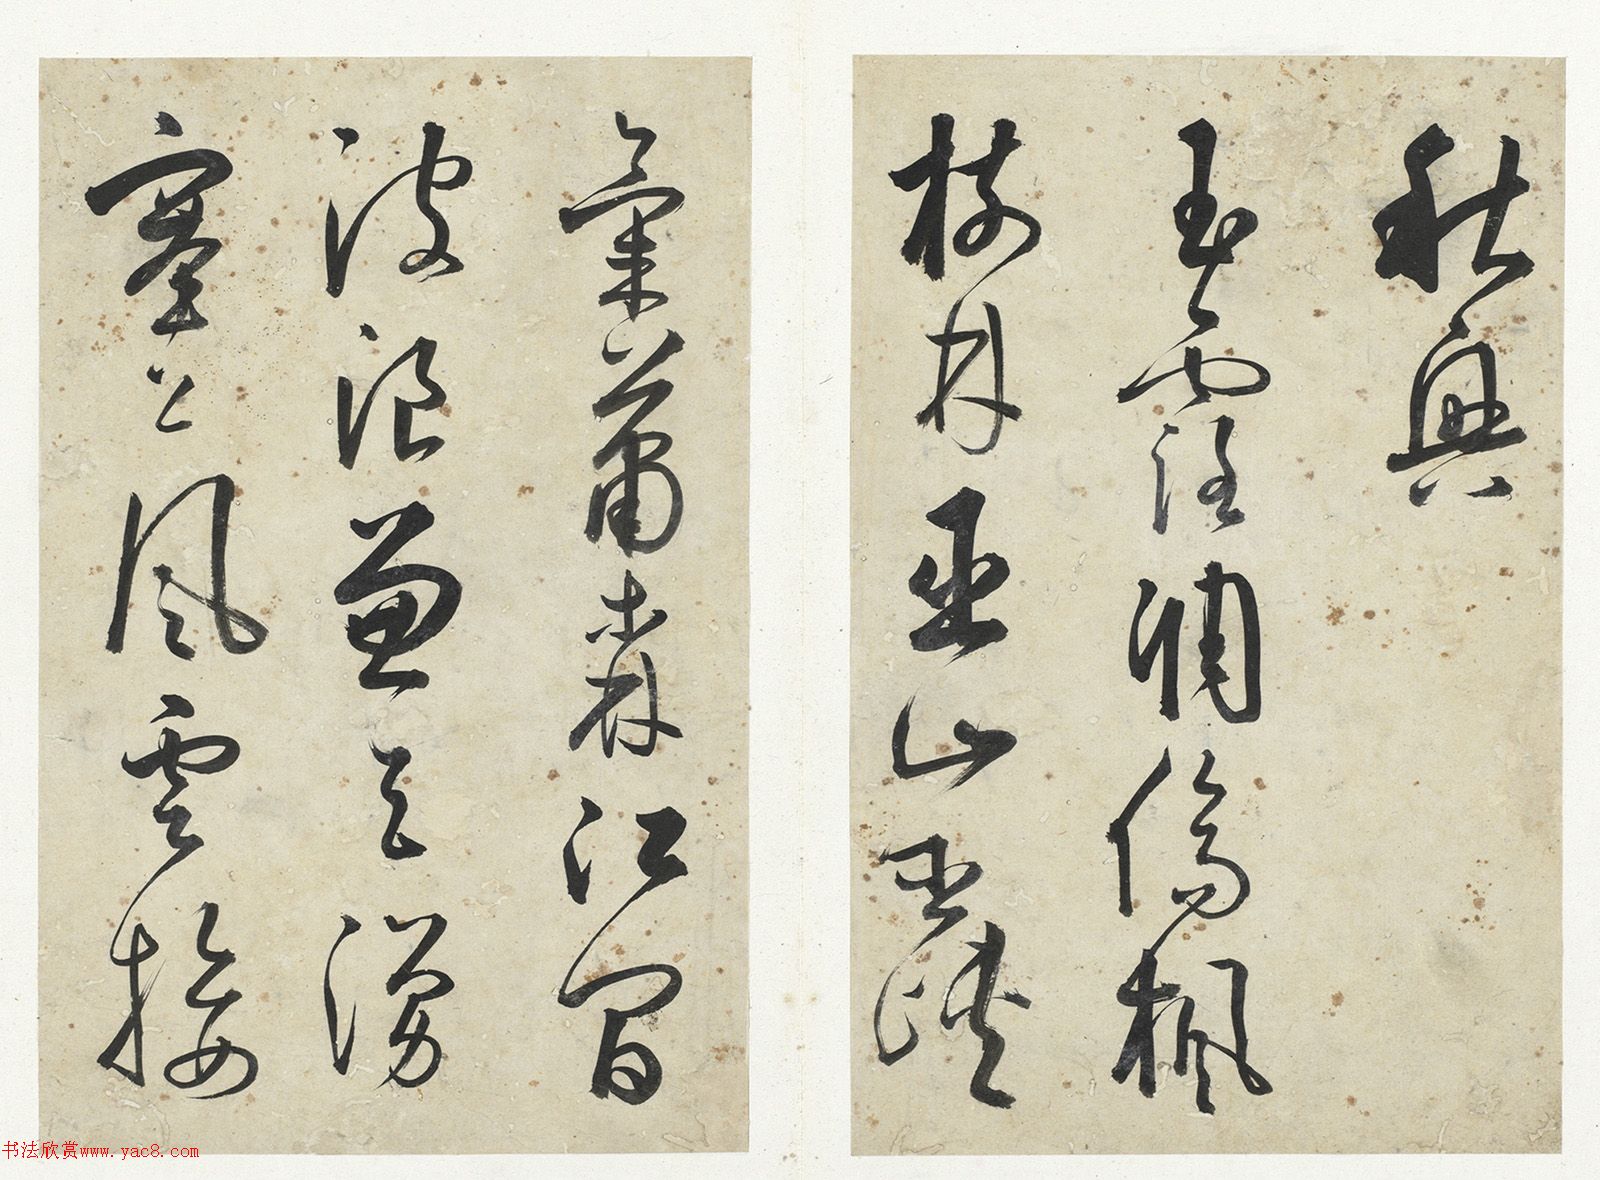 秋興
玉露凋傷楓
樹林巫山巫峽
氣蕭森江間
波浪兼天湧
塞上風雲接
书法欣赏www.yac8.com